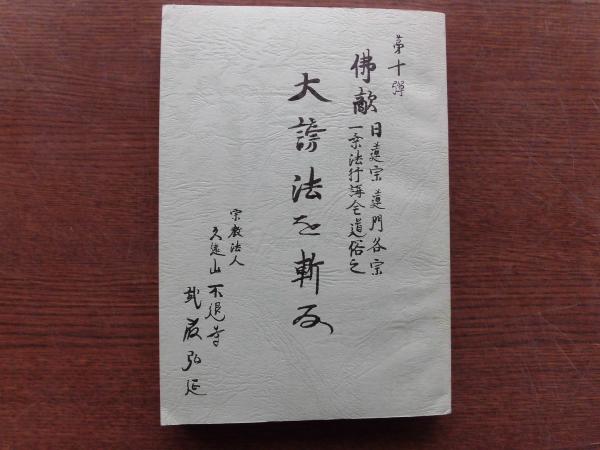 第十弾
佛敵
日蓮宗蓮門各宗
一乗法行講全道俗之
大謗法を斬る
宗教法人
久遠山不退寺
弘延